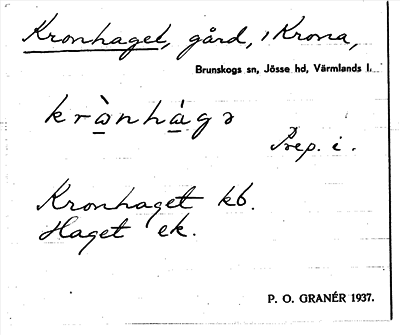 Kronhaget, gård, i Krona,
Brunskogs sn, Jösse hd, Värmlands l.
krànhágə
Prep. i.
Kronhaget kb.
Haget ek.
P. O. GRANÉR 1937.